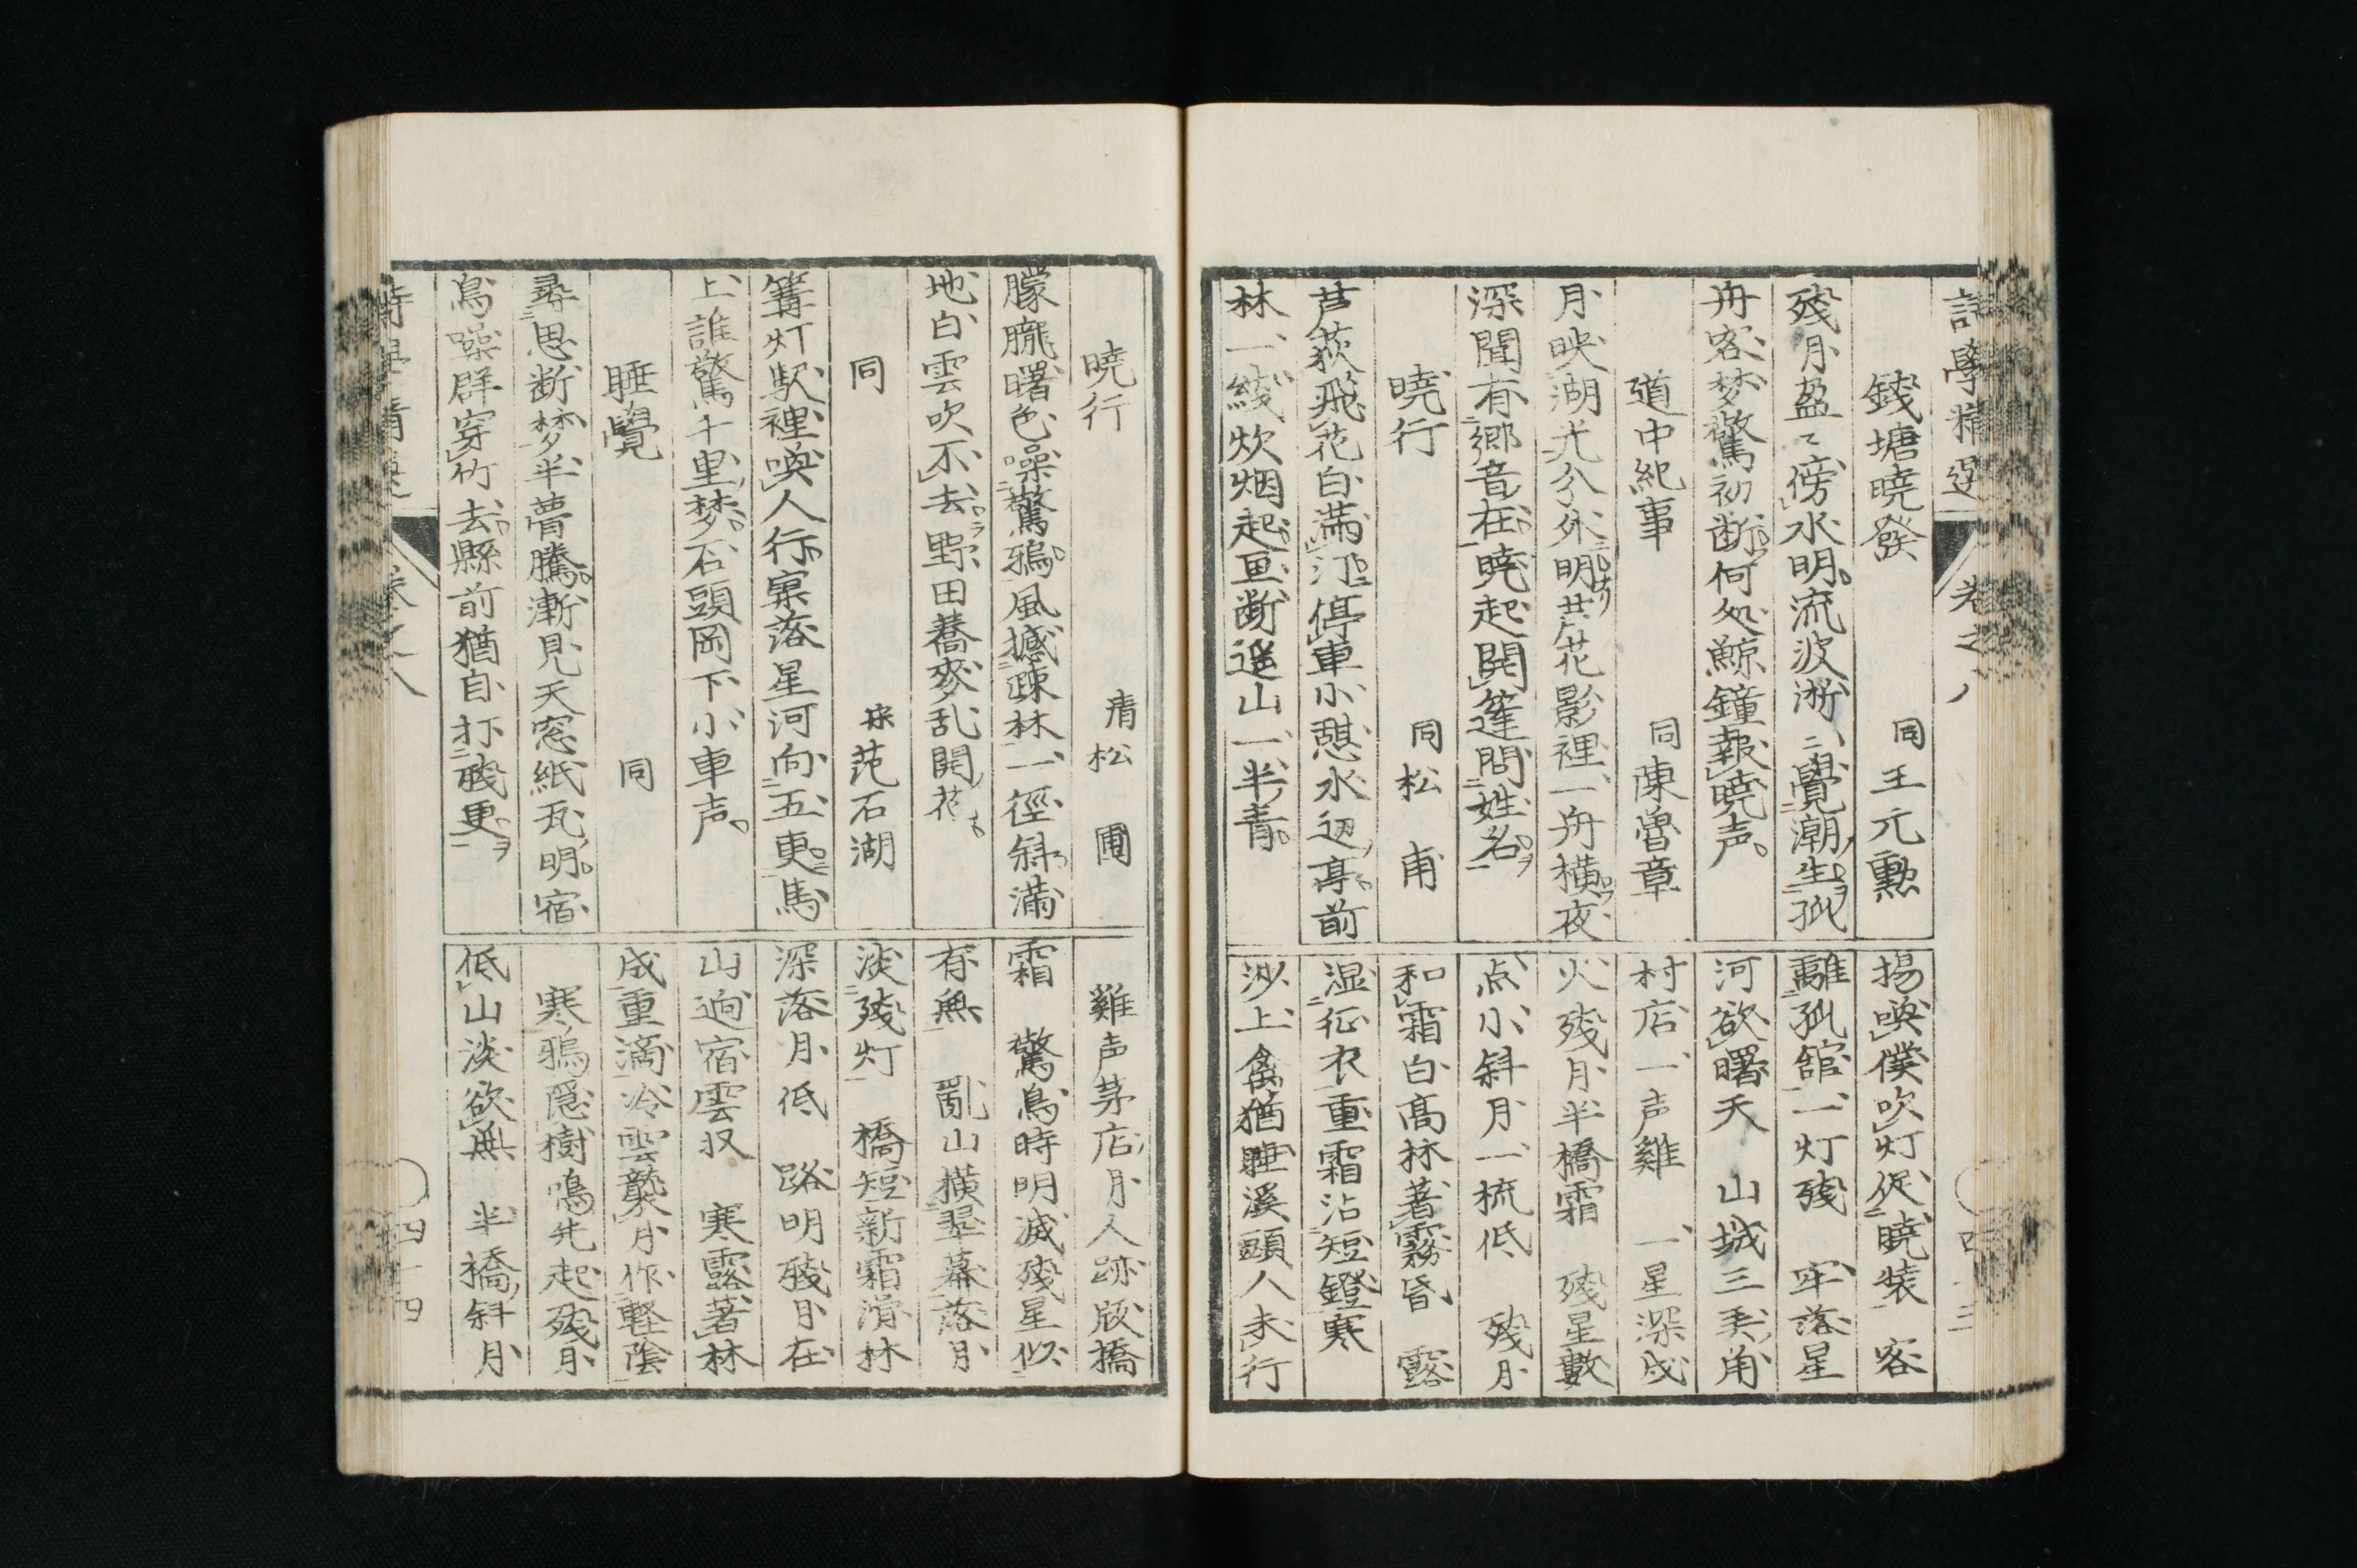 詩學精選 卷之八
錢塘暁發 同王元勲
残月盈々傍水明流波淅覺潮生孤
舟客梦驚初断何処鯨鐘報暁声
道中紀事 同陳曽章
月映湖光分外明芦花影裡一舟横夜
深聞有郷音在暁起開篷問姓名
暁行 同松甫
芦荻飛花白満汀停車小憇水辺亭前
林一綫炊烟起画断遥山一半青
揚喚僕吹灯促暁装 客
離孤舘一灯残 牢落星
河欲曙天 山城三奏角
村店一声雞 一星深戍
火残月半橋霜 残星數
点小斜月一梳低 残月
和霜白高林著霧昏 露
湿征衣重霜沾短鐙寒
沙上禽猶睡溪頭人未行
暁行 清松圃
朦朧曙色噪驚鴉風撼疎林一徑斜満
地白雲吹不去野田蕎麥乱開花
同 宋范石湖
篝灯馭裡喚人行寥落星河向五更馬
上誰驚千里梦石頭岡下小車声
睡覺 同
尋思断梦半瞢騰漸見天窓紙瓦明宿
鳥噪群穿竹去縣前猶自打残更
雞声茅店月人跡版橋
霜 驚鳥時明滅残星似
有無 亂山横翠幕落月
淡残灯 橋短新霜滑林
深落月低 路明残月在
山逈宿雲収 寒露著林
成重滴冷雲襲月作軽陰
寒鴉隠樹鳴先起残月
低山淡欲無 半橋斜月
卷之八 四十四